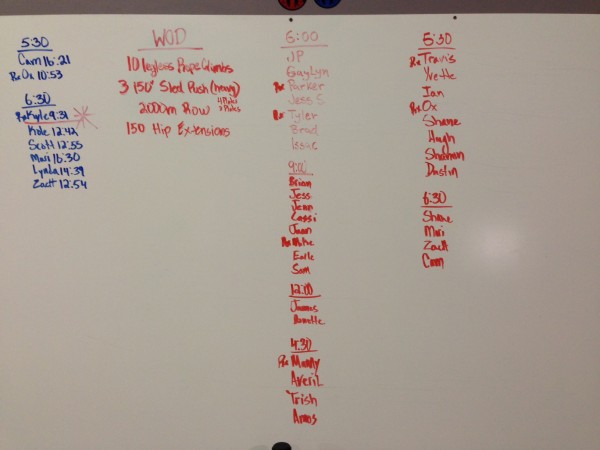 5:30
Cam 16:21
Rx Ox 10:53
6:30
Rx Kyle 9:31
Kole 12:42
Scott 12:55
Mari 16:30
Lynda 14:39
Zach 12:54
WOD
10 legless Rope Climbs
3 150' Sled Push (heavy)
4 Plates
2 Plates
2000m Row
150 Hip Extensions
6:00
JP
GayLyn
Rx Parker
Jess S
Rx Tyler
Brad
Issac
9:00
Brian
Jess
Jenn
Cassi
Juan
Rx
Earle
Sam
12:00
James
4:30
Rx Manny
Averil
Trish
Amos
5:30
Rx Travis
Yvette
Ian
Rx Ox
Shane
Hugh
Shannan
Dustin
6:30
Shane
Mari
Zach
Cam